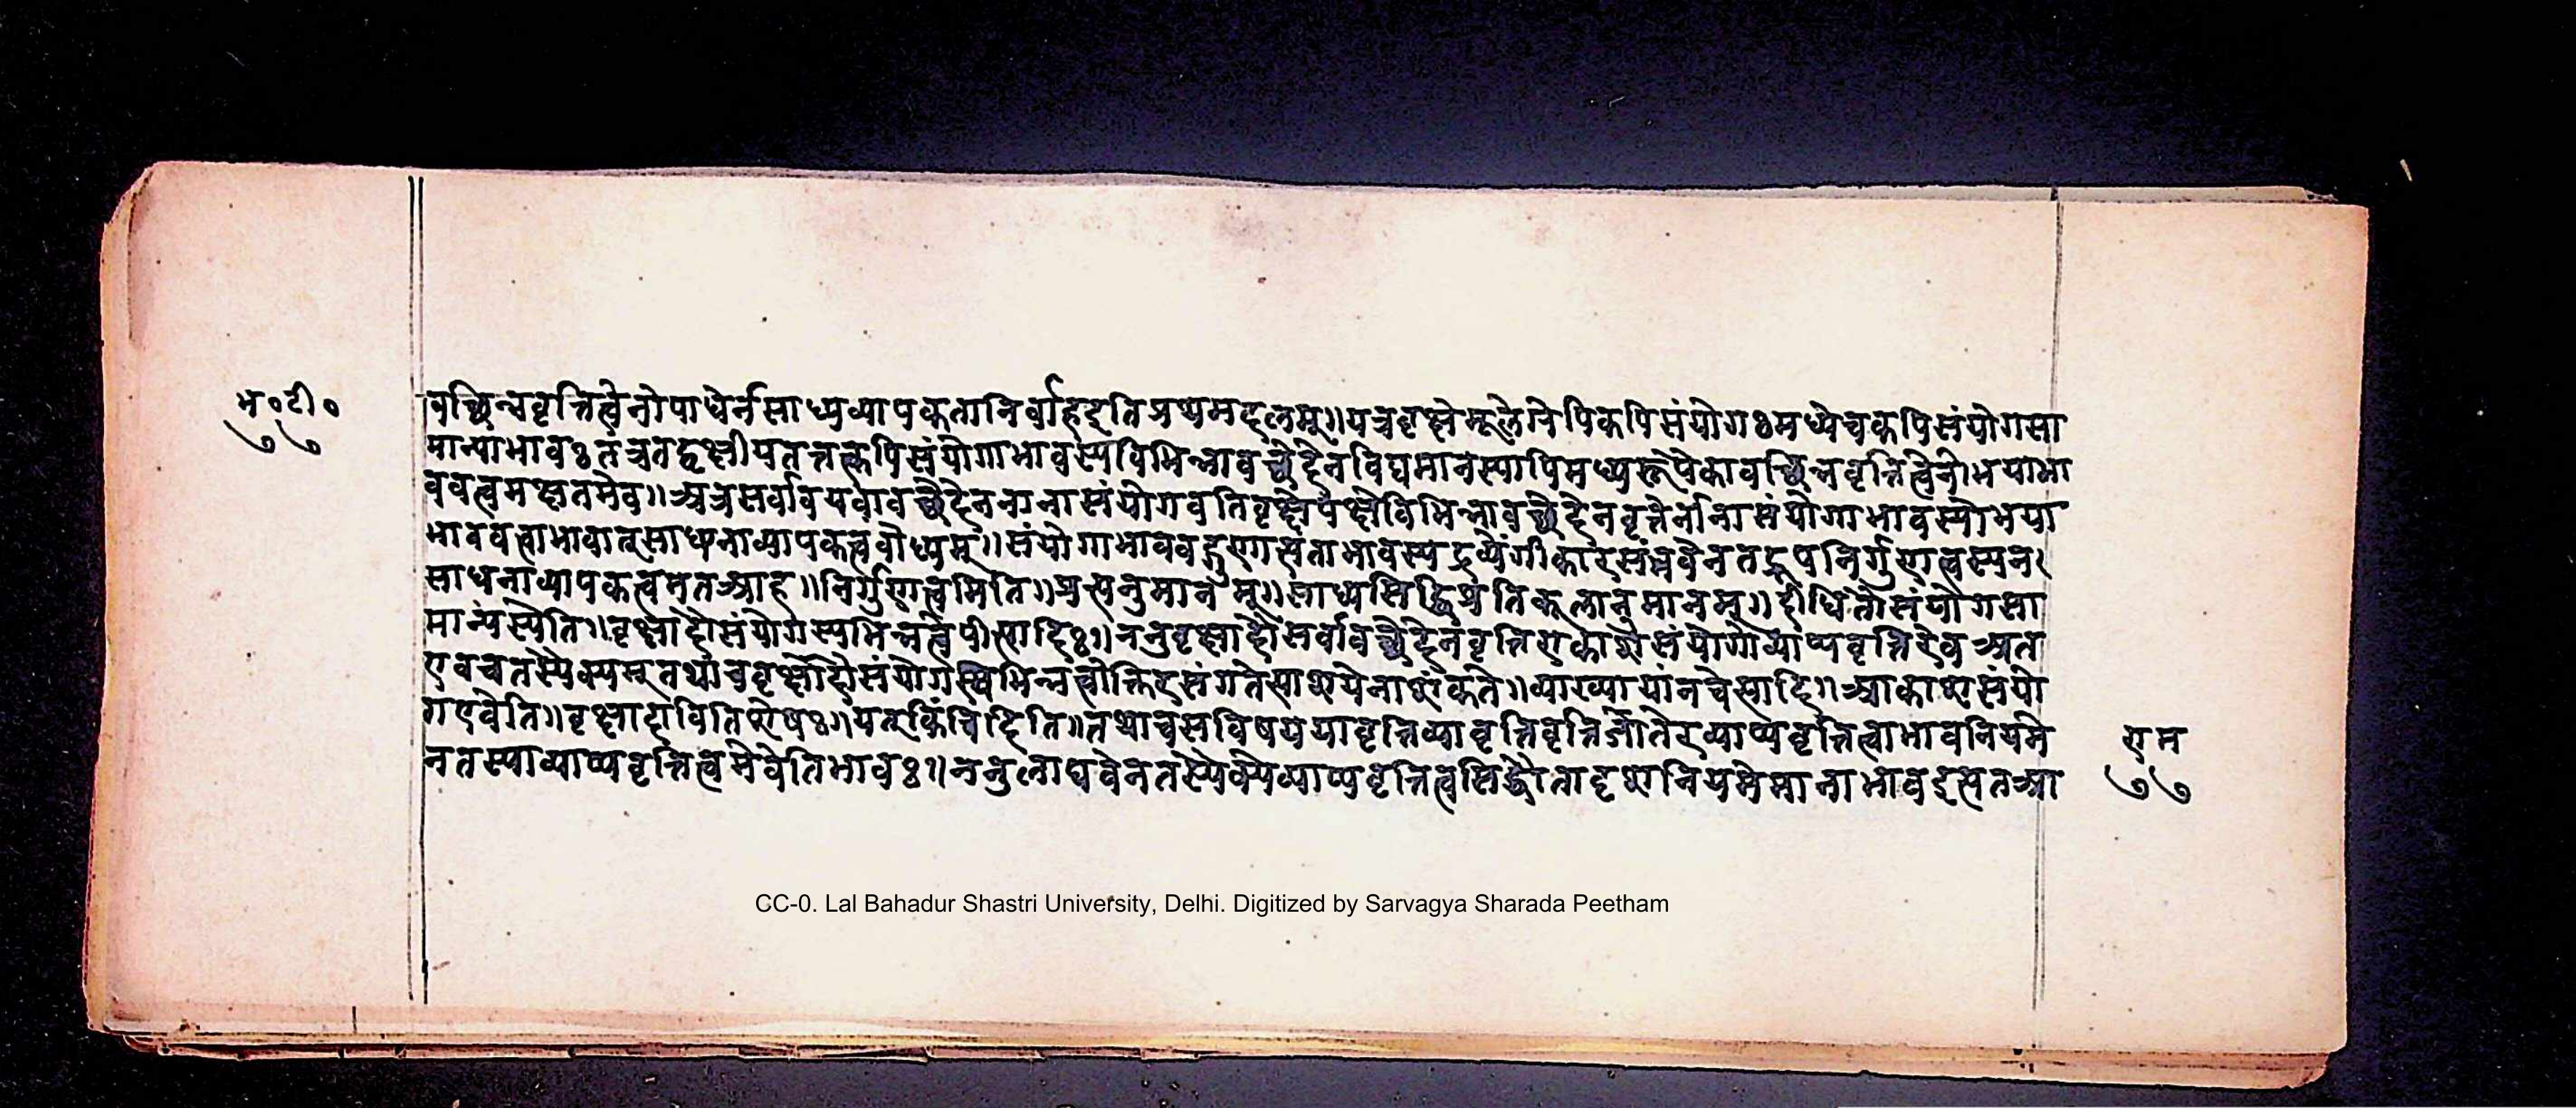 भ०टी०
७७
वच्छिन्नवृत्तित्वेनोपाधेर्नसाध्यव्यापकतानिर्वाहइतिप्रथमदलम्॥यत्रवृक्षेमूलेग्रेपिकपिसंयोगःमध्येचकपिसंयोगसा
मान्याभावःतत्रतद्वृक्षीयतत्तत्कपिसंयोगाभावस्यविभिन्नावच्छेदेनविद्यमानस्यापिमध्यरूपैकावच्छिन्नवृत्तित्वेनोभयाभा
ववत्वमक्षतमेव॥अत्रसर्वावयवावच्छेदेननानासंयोगवतिवृक्षेपक्षेविभिन्नावच्छेदेनवृत्तेर्नानासंयोगाभावस्योभया
भाववत्वाभावात्साधनाव्यापकत्वंबोध्यम्॥संयोगाभाववद्गुणसत्ताभावस्यद्रव्येंगीकारसंभवेनतद्रूपनिर्गुणत्वस्यन
साधनाव्यापकत्वमतआह॥निर्गुणत्वमिति॥प्रत्यनुमानम्॥साध्यसिद्धिप्रतिकूलानुमानम्॥दीधितौसंयोगसा
मान्यस्येति॥वृक्षादौसंयोगस्यभिन्नत्वेपीत्यादिः॥ननुवृक्षादौसर्वावच्छेदेनवृत्तिराकाशेसंयोगोव्याप्यवृत्तिरेवअत
एवचतस्यैक्यम्तथाचवृक्षादौसंयोगस्यविभिन्नत्वोक्तिरसंगतेत्याशयेनाशंकते॥व्याख्यायांनचेत्यादि॥आकाशसंयो
गएवेति॥वृक्षादावितिशेषः॥यत्किंचिदिति॥तथाचसविषययावृत्तिव्यावृत्तिवृत्तिजातेरव्याप्यवृत्तित्वाभावनियमे
नतस्याव्याप्यवृत्तित्वमेवेतिभावः॥ननुलाघवेनतस्यैक्येव्याप्यवृत्तित्वसिद्धौतादृशनियमेमानाभावइत्यतआ
राम
७७
CC-0. Lal Bahadur Shastri University, Delhi. Digitized by Sarvagya Sharada Peetham